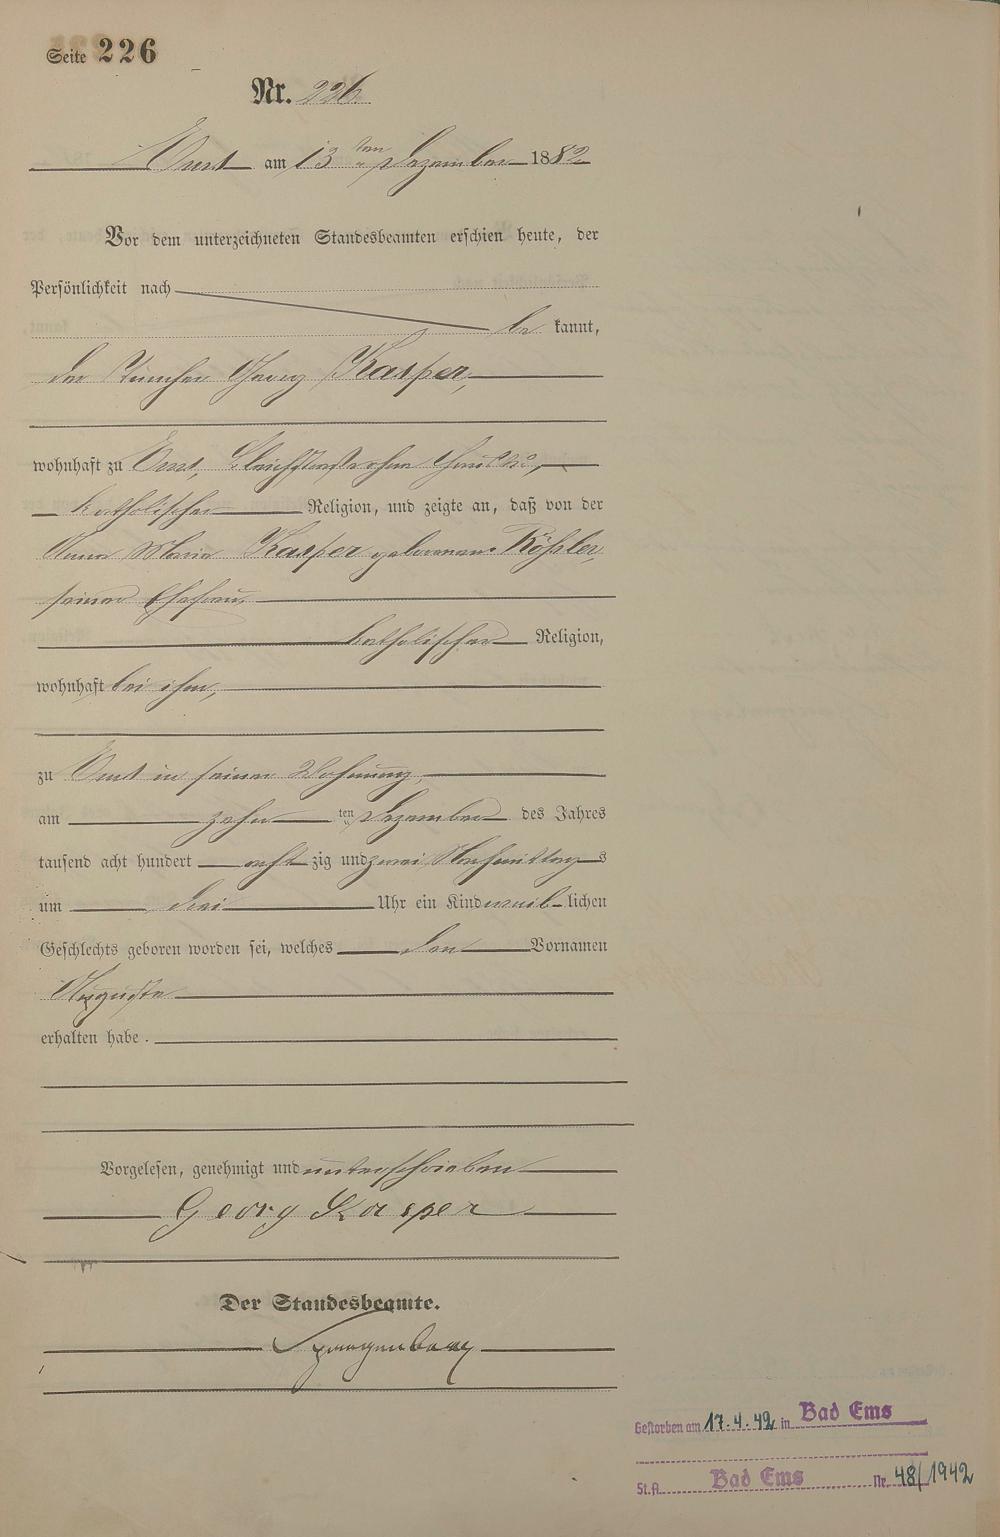 Seite 226
Nr. 226.
Ems am 13 ten Dezember 1882
Vor dem unterzeichneten Standesbeamten erschien heute, der
Persönlichkeit nach
be kannt,
der Tüncher Georg Kasper,
wohnhaft zu Ems,
katholischer Religion, und zeigte an, daß von der
Anna Maria Kasper geborenen Rößler,
seiner Ehefrau,
katholischer Religion,
wohnhaft bei ihm,
zu Ems in seiner Wohnung,
am zehn ten Dezember des Jahres
tausend acht hundert acht zig und zwei Nachmittags
um drei Uhr ein Kind weib-lichen
Geschlechts geboren worden sei, welches den Vornamen
Auguste
erhalten habe.
Vorgelesen, genehmigt und unterschrieben
Georg Kasper
Der Standesbeamte.
Spangenberg
Gestorben am 17.4.42 in Bad Ems
St.A. Bad Ems Nr. 48/1942